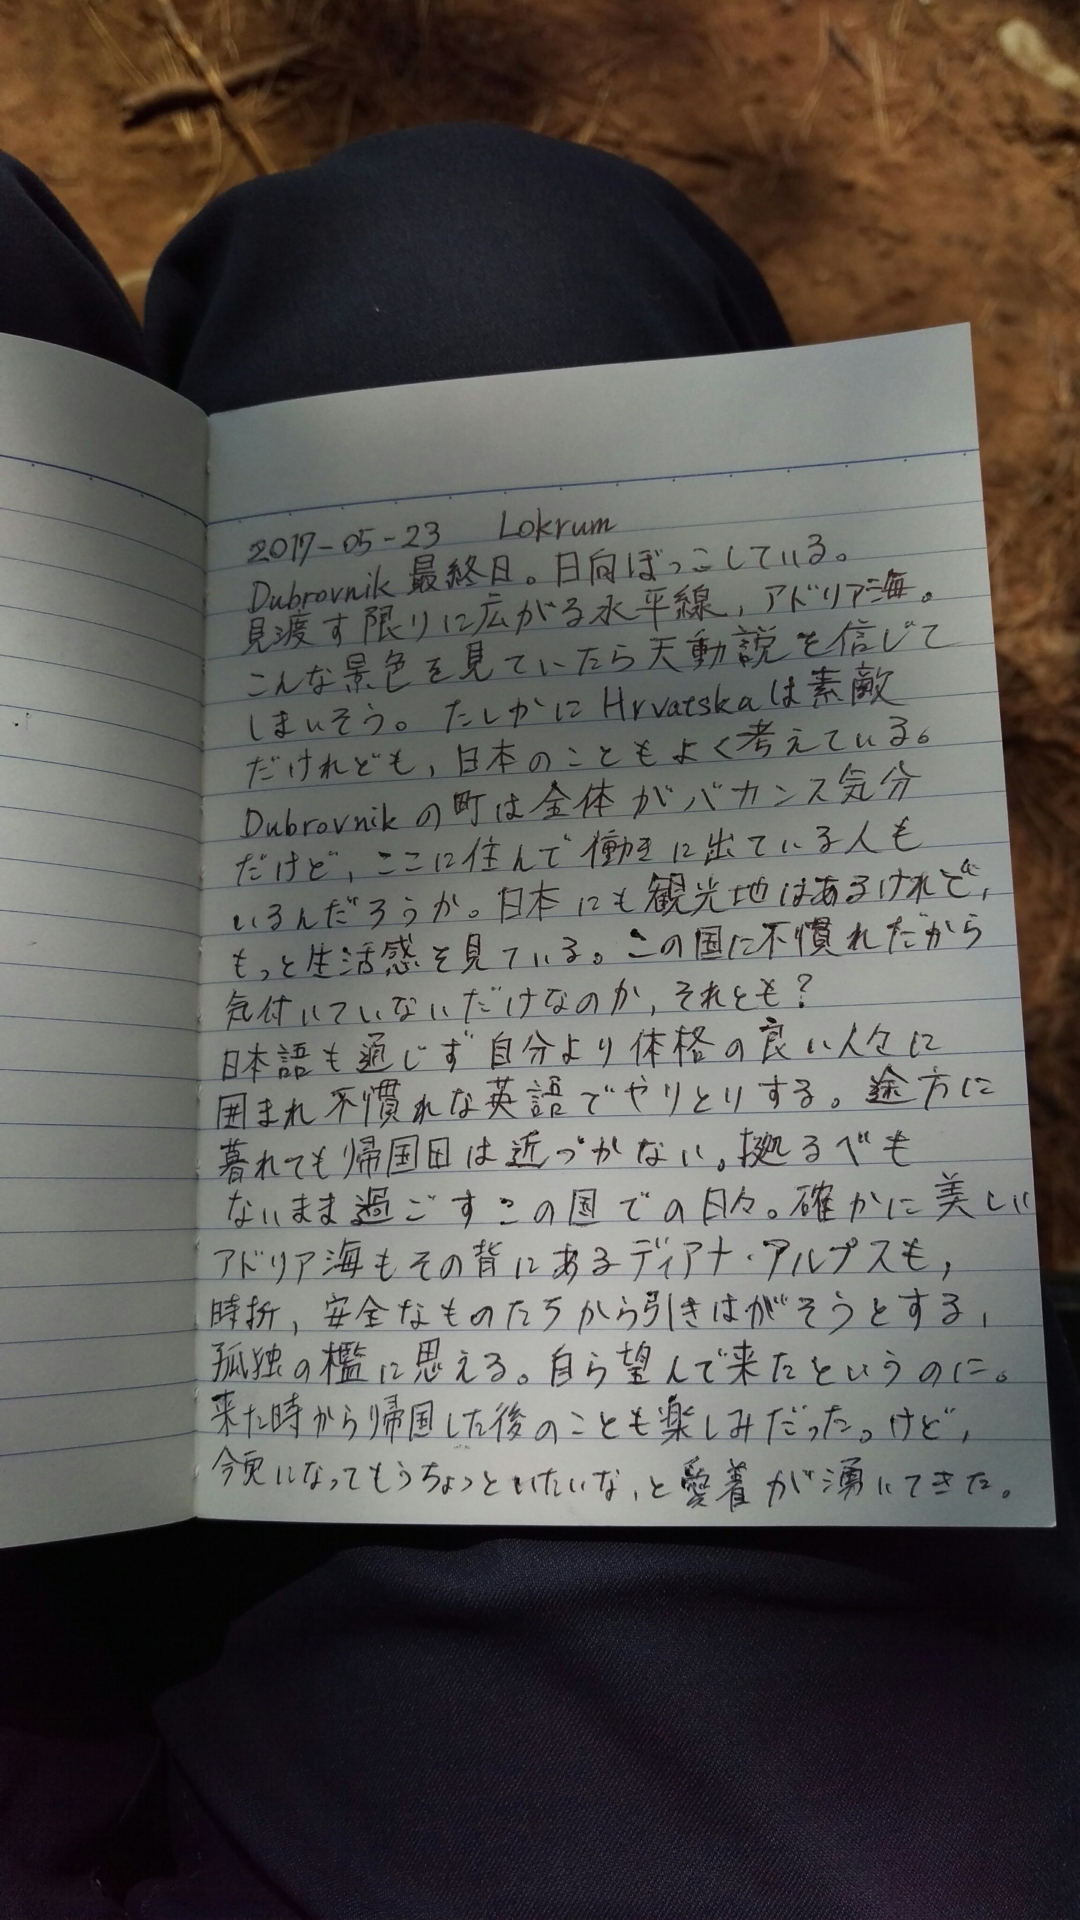 2017-05-23 Lokrum
Dubrovnik 最終日。日向ぼっこしている。
見渡す限りに広がる水平線，アドリア海。
こんな景色を見ていたら天動説を信じて
しまいそう。たしかに Hrvatskaは素敵
だけれども，日本のこともよく考えている。
Dubrovnikの町は全体がバカンス気分
だけど，ここに住んで働きに出ている人も
いるんだろうか。日本にも観光地はあるけれど，
もっと生活感を見ている。この国に不慣れだから
気付いていないだけなのか，それとも？
日本語も通じず自分より体格の良い人々に
囲まれ不慣れな英語でやりとりする。途方に
暮れても帰国日は近づかない。拠るべも
ないまま過ごすこの国での日々。確かに美しい
アドリア海もその背にあるディアナ・アルプスも，
時折，安全なものたちから引きはがそうとする，
孤独の檻に思える。自ら望んで来たというのに。
来た時から帰国した後のことも楽しみだった。けど，
今更になってもうちょっといたいな，と愛着が湧いてきた。